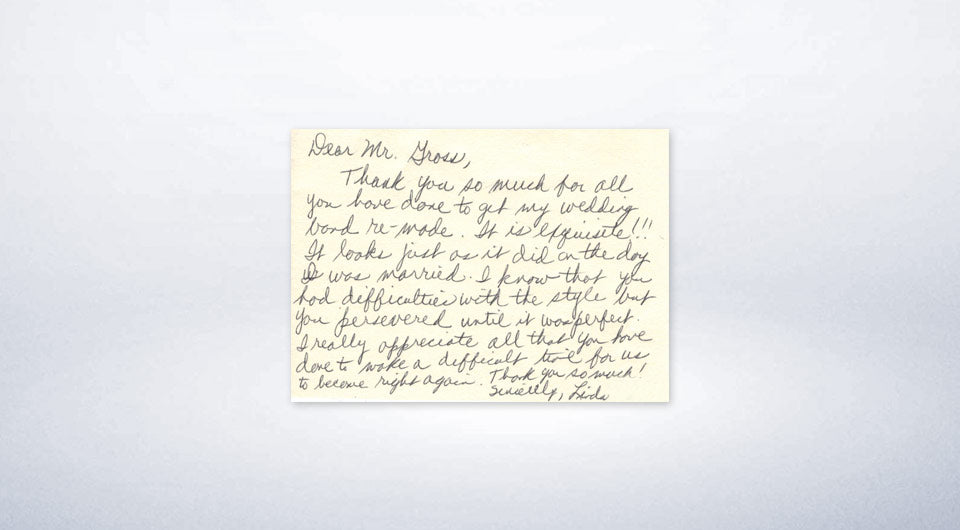 Dear Mr. Gross,
Thank you so much for all
you have done to get my wedding
band re-made. It is exquisite!!!
It looks just as it did on the day
I was married. I know that you
had difficulties with the style but
you persevered until it was perfect.
I really appreciate all that you have
done to make a difficult time for us
to become right again. Thank you so much!
Sincerely, Linda